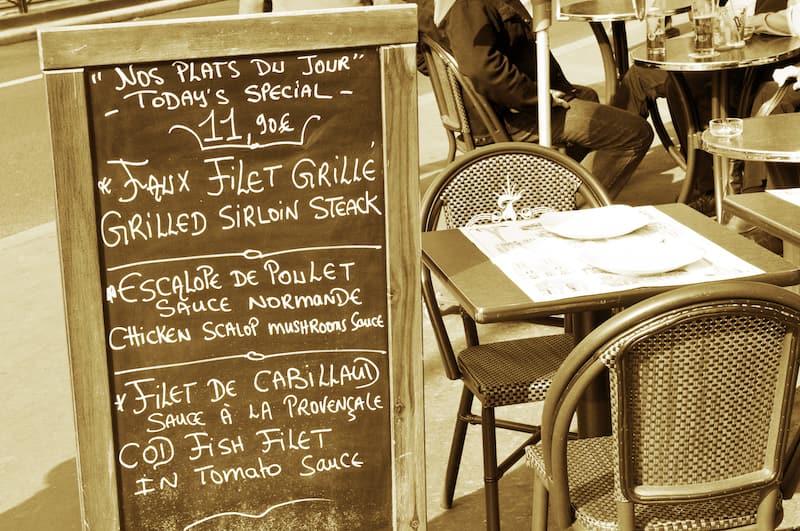 "NOS PLATS DU JOUR"
- TODAY'S SPECIAL -
11,90€
* FAUX FILET GRILLÉ
GRILLED SIRLOIN STEACK
* ESCALOPE DE POULET
SAUCE NORMANDE
CHICKEN SCALOP MUSHROOMS SAUCE
* FILET DE CABILLAUD
SAUCE À LA PROVENÇALE
COD FISH FILET
IN TOMATO SAUCE